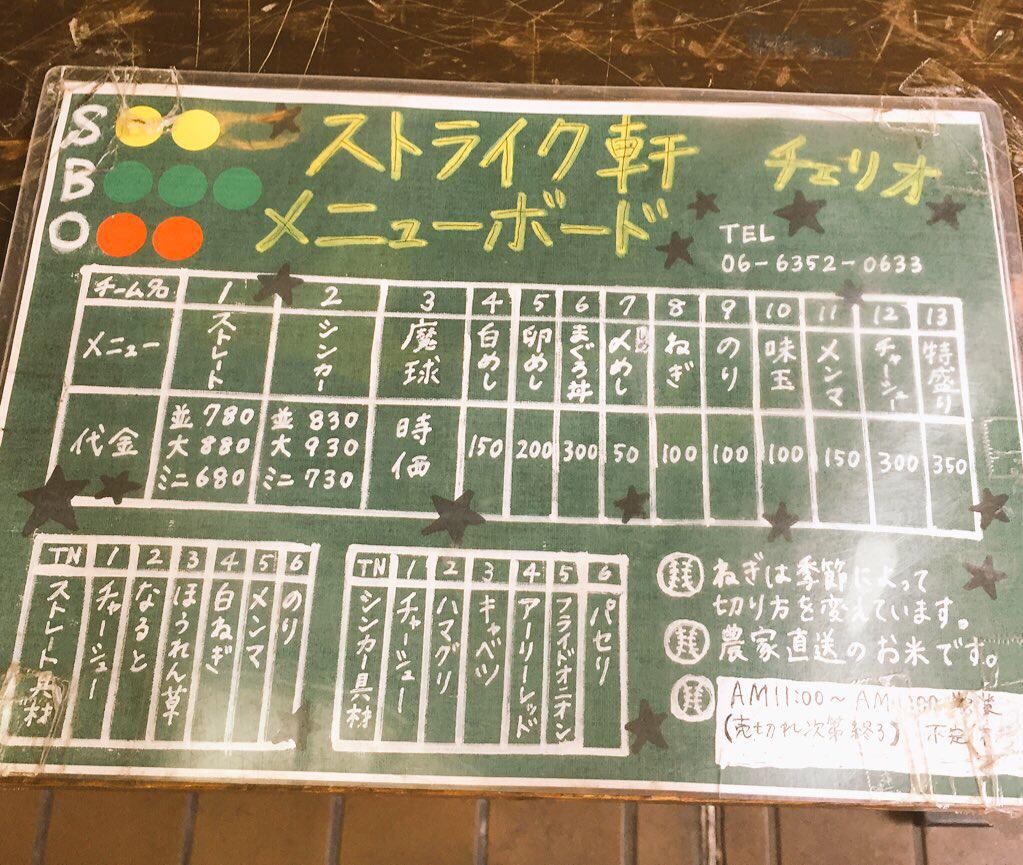 S
B
O
ストライク軒 チェリオ
メニューボード
TEL
06-6352-0633
チーム名 1 2 3 4 5 6 7 8 9 10 11 12 13
メニュー ストレート シンカー 魔球 白めし 卵めし まぐろ丼 〆めし ねぎ のり 味玉 メンマ チャーシュー 特盛り
代金 並780 大880 ミニ680 並830 大930 ミニ730 時価 150 200 300 50 100 100 100 150 300 350
TN 1 2 3 4 5 6
ストレート具材 チャーシュー なると ほうれん草 白ねぎ メンマ のり
TN 1 2 3 4 5 6
シンカー具材 チャーシュー ハマグリ キャベツ アーリーレッド フライドオニオン パセリ
ねぎは季節によって
切り方を変えています。
農家直送のお米です。
AM11:00〜
(売切れ次第終了) 不定